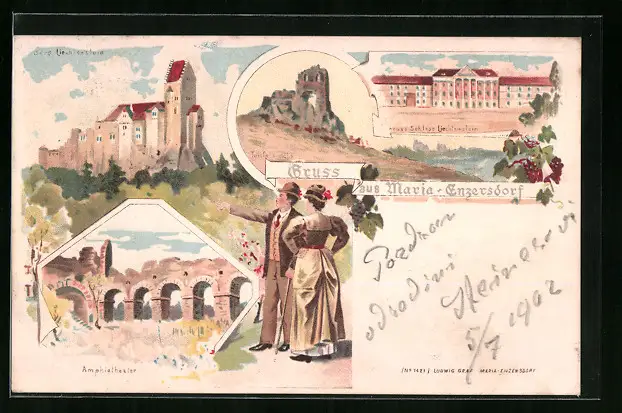 Burg Liechtenstein
Neues Schloss Liechtenstein
Gruss
aus Maria-Enzersdorf
Pozdrav
5/7 1902
Amphitheater
(No 1421) LUDWIG GRAF MARIA-ENZERSDORF